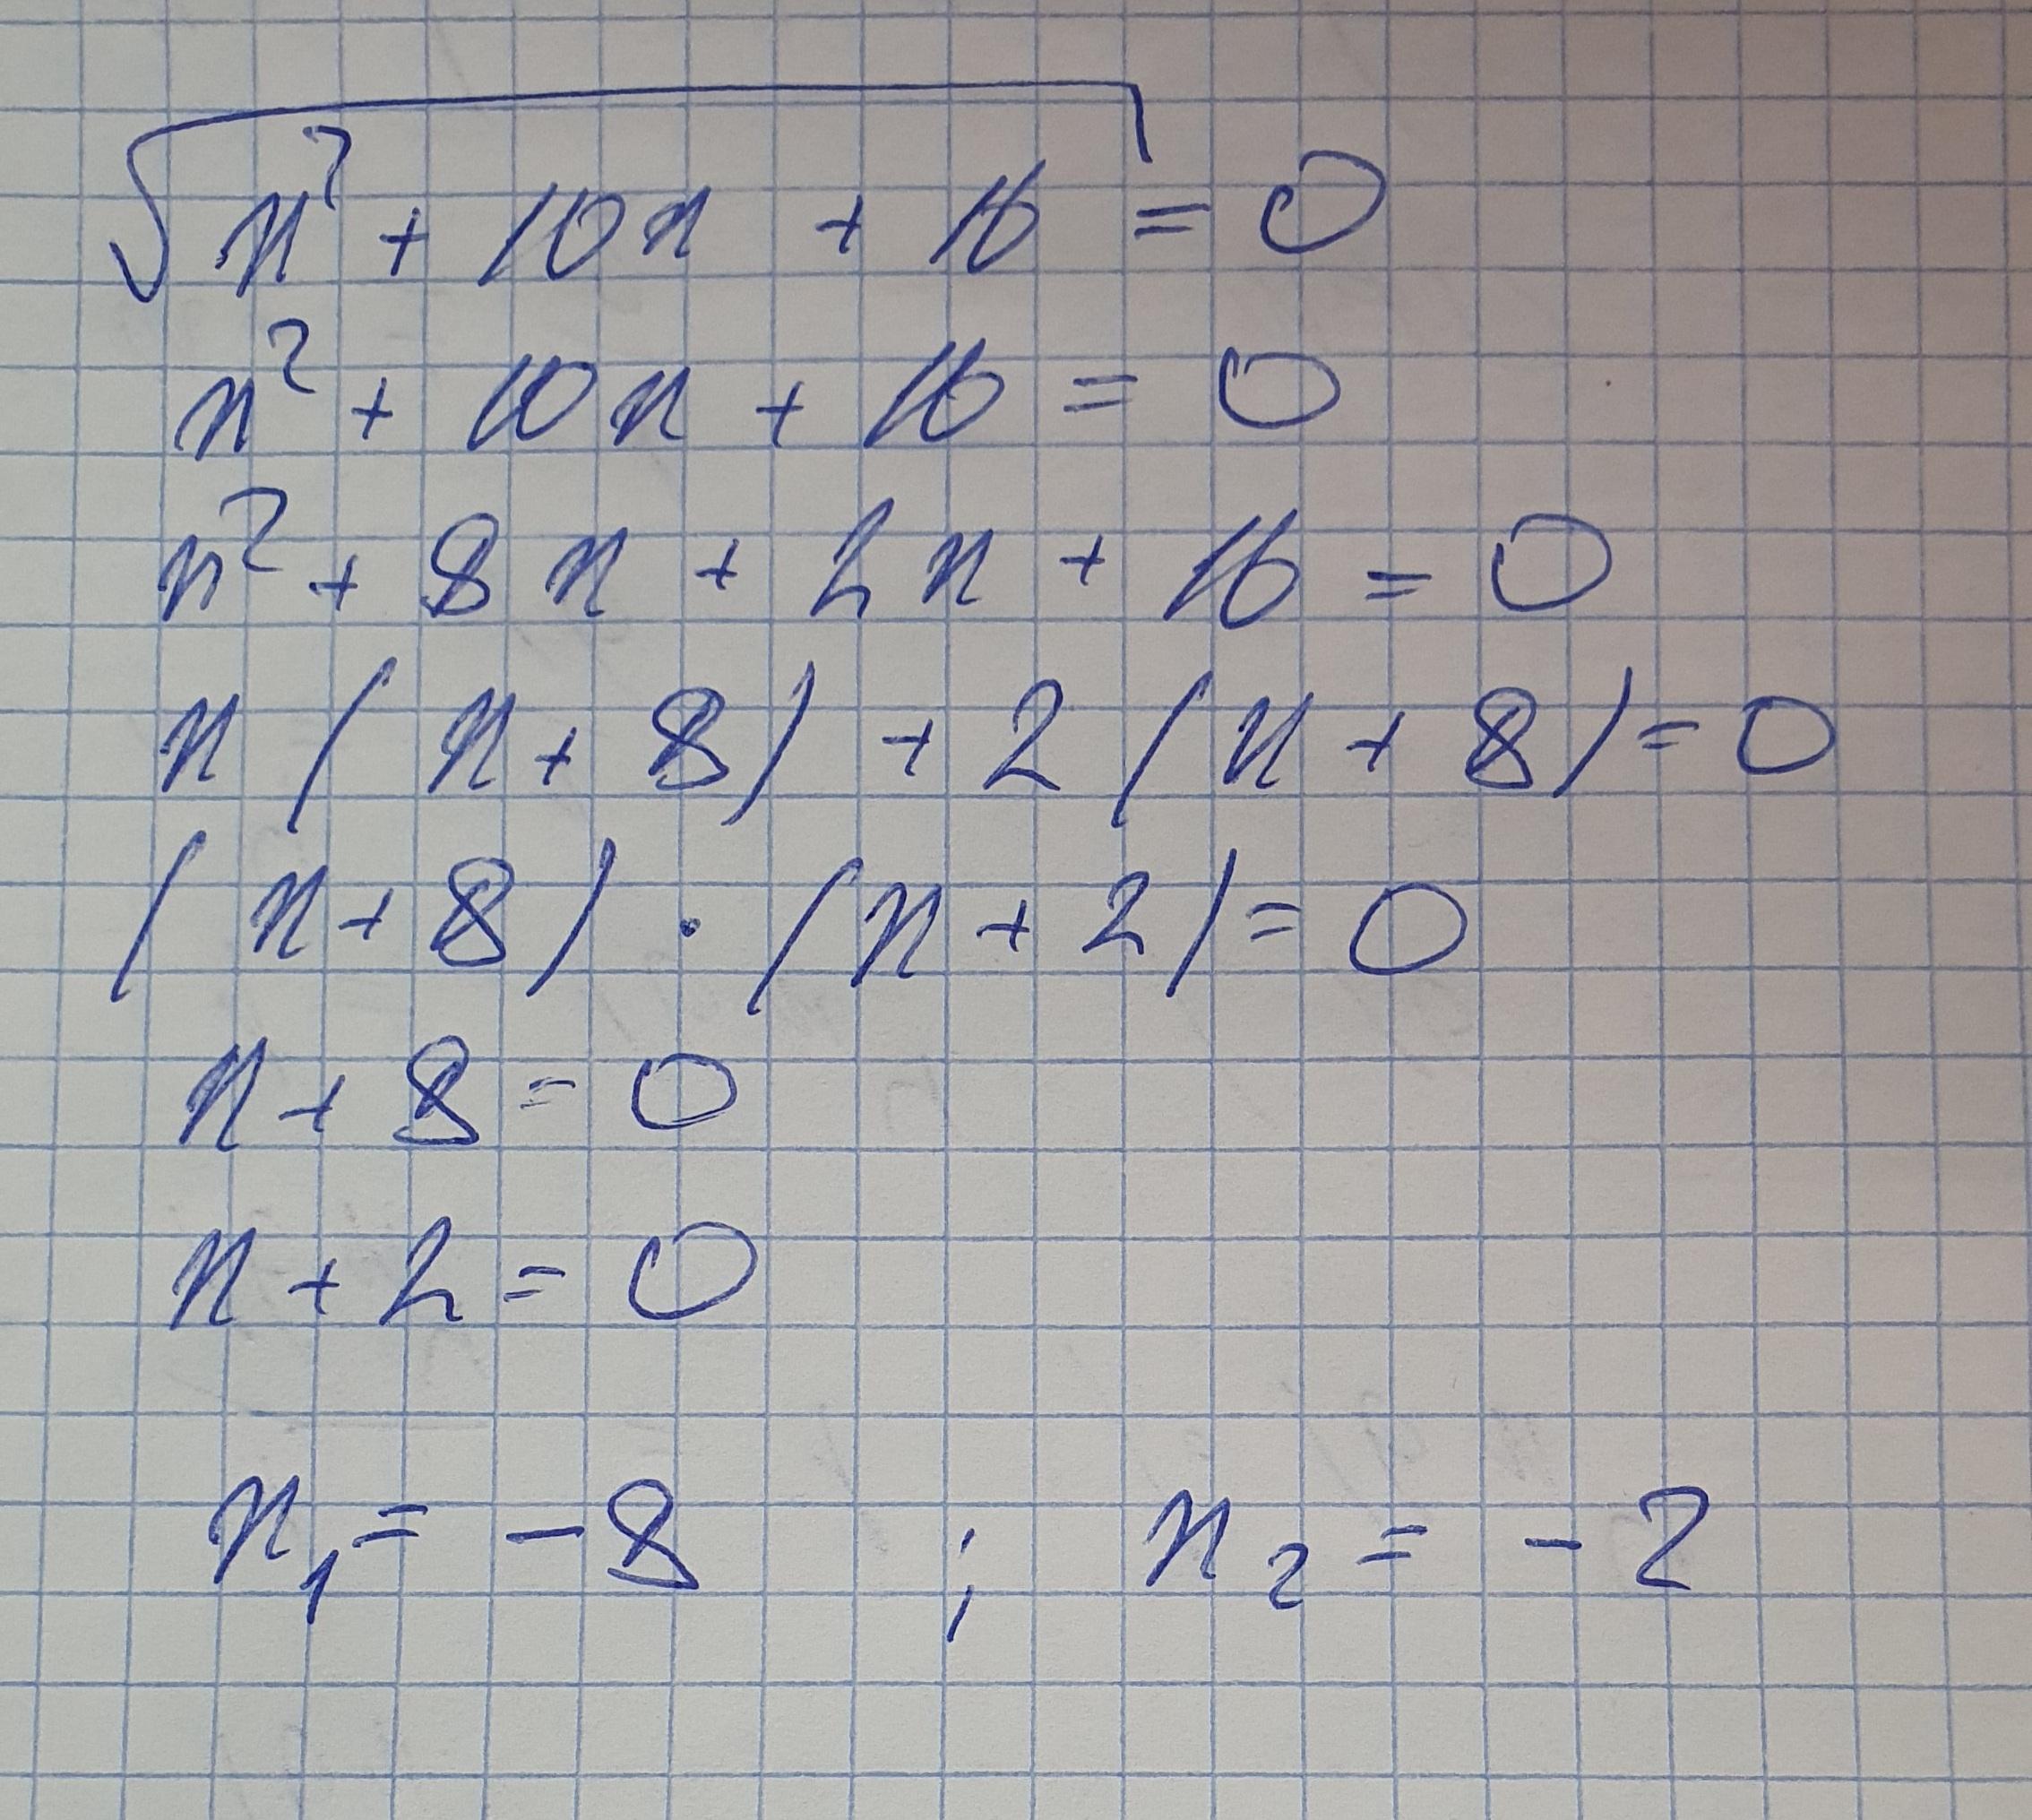 √(x² + 10x + 16) = 0
x² + 10x + 16 = 0
x² + 8x + 2x + 16 = 0
x(x + 8) + 2(x + 8) = 0
(x + 8) · (x + 2) = 0
x + 8 = 0
x + 2 = 0
x₁ = -8 ; x₂ = -2